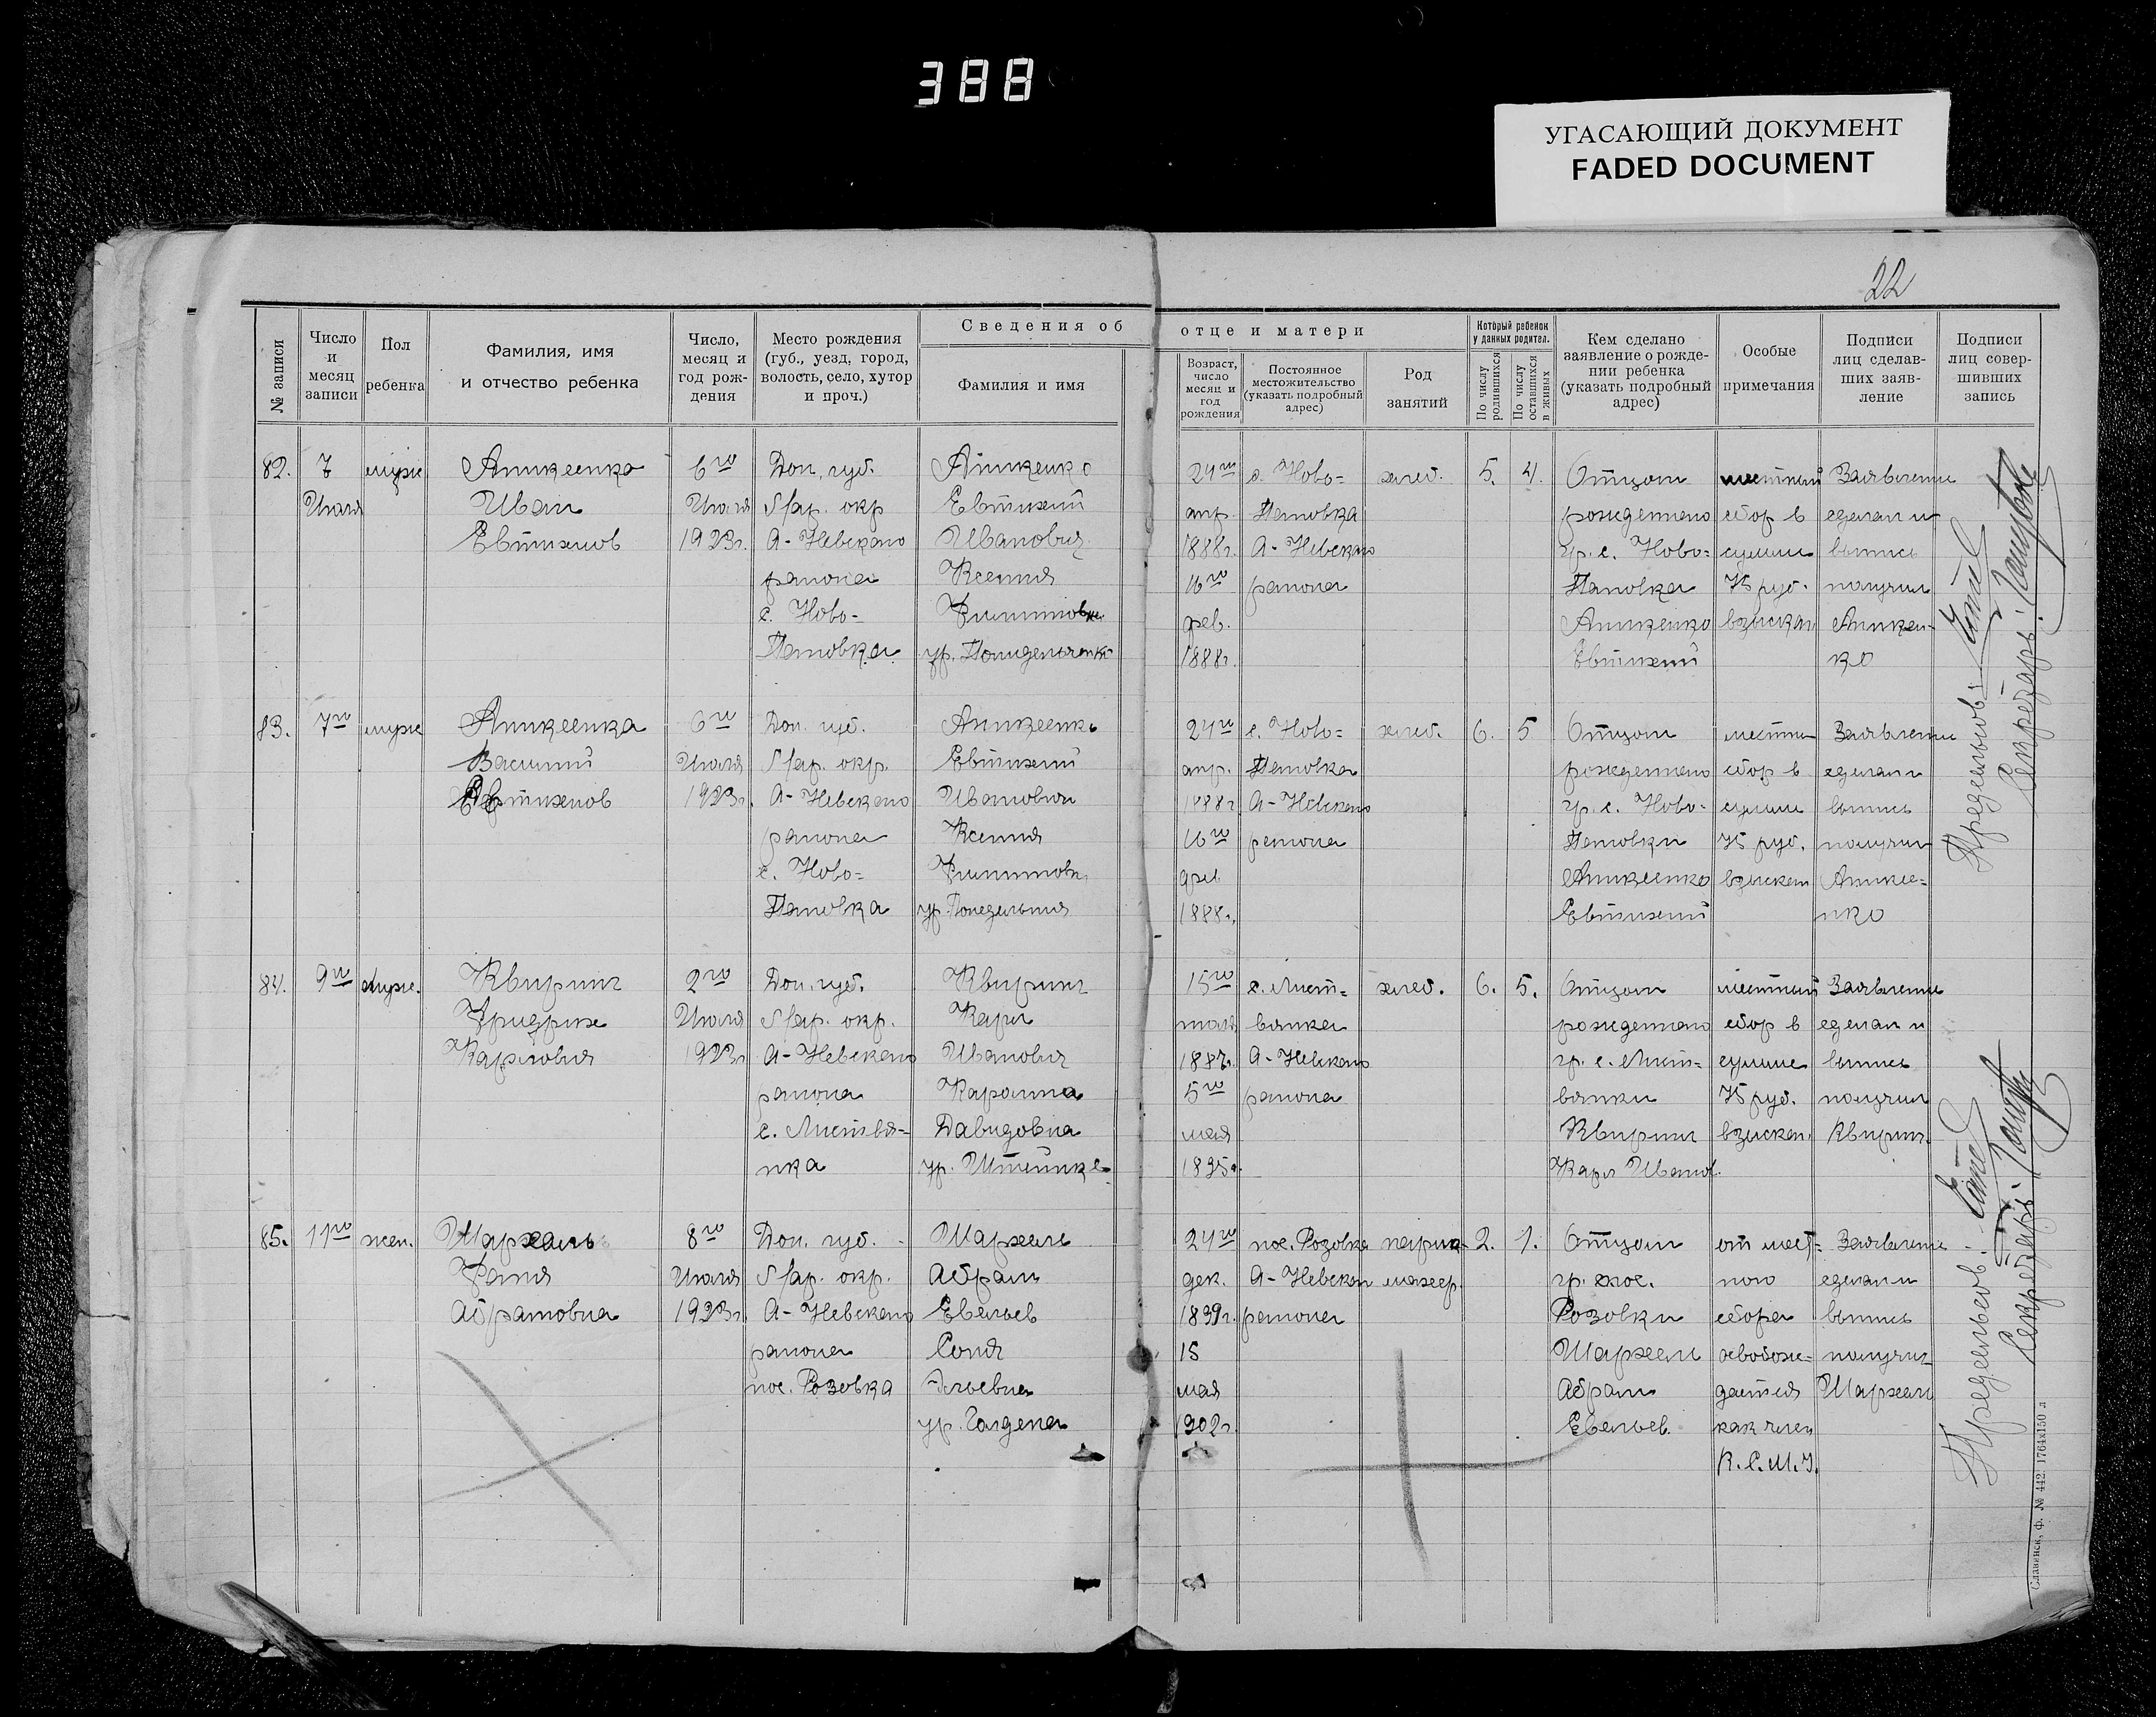 388
УГАСАЮЩИЙ ДОКУМЕНТ
FADED DOCUMENT
22
№ записи
Число и месяц записи
Пол ребенка
Фамилия, имя и отчество ребенка
Число, месяц и год рождения
Место рождения (губ., уезд, город, волость, село, хутор и проч.)
Сведения об отце и матери
Фамилия и имя
Возраст, число месяц и год рождения
Постоянное местожительство (указать подробный адрес)
Род занятий
Который ребенок у данных родител.
По числу родившихся
По числу оставшихся в живых
Кем сделано заявление о рождении ребенка (указать подробный адрес)
Особые примечания
Подписи лиц сделавших заявление
Подписи лиц совершивших запись
82. 7 муж Аникеенко 6го Дон. губ. Аникенко 24го с. Ново- хлеб. 5. 4. Отцом местный Заявление
Июля Иван Июля Мар. окр Евтихий апр. рожденного сбор в сделал и
Евтихиев 1923г. А-Невского Иванович 1888г. А-Невского гр. с. Ново- сумме выпись
района Ксения 16го района 75 руб. получил
с. Ново- фев. Аникенко взыскан Аникен-
ур. 1888г. Евтихий ко
83. 7го муж Аникеенка 6го Дон. губ. Аникеенко 24го с. Ново- хлеб. 6. 5 Отцом местны Заявление
Василий Июля Мар. окр. Евтихий апр. рожденного сбор в сделал и
1923г. А-Невского Иванович 1888г А-Невского гр. с. Ново- сумме выпись
района Ксения 16го района 75 руб. получил
с. Ново- фев Аникеенко взыскан Аникее-
ур. 1888г. Евтихий нко
84. 9го муж. Квиринг 2го Дон. губ. Квиринг 15го с. Лист- хлеб. 6. 5. Отцом местный Заявление
Фридрих Июля Мар. окр. Карл мая вянка рожденного сбор в сделал и
Карлович 1923г А-Невского Иванович А-Невского гр. с. Лист- сумме выпись
района 5го района вянки 75 руб. получил
с. Листвя- Давидовна мая Квиринг взыскан Квиринг
нка ур. 1895г. Карл Иванов.
85. 11го жен. Шархель 8го Дон. губ. Шархель 24го пос. Розовка парик- 2. 1. Отцом от мест- Заявление
Фаня Июля Мар. окр. Абрам дек. А-Невского махер. гр. пос. ного сделал и
Абрамовна 1923г. А-Невского Евельев района Розовки сбора выпись
района Соня 15 Шархель освобож- получил
пос. Розовка мая Абрам дается Шархель
ур. 1902г. Евельев. как член
К.С.М.У.
Секретарь:
Секретарь:
Славянск, ф. № 442. 1764х150 л